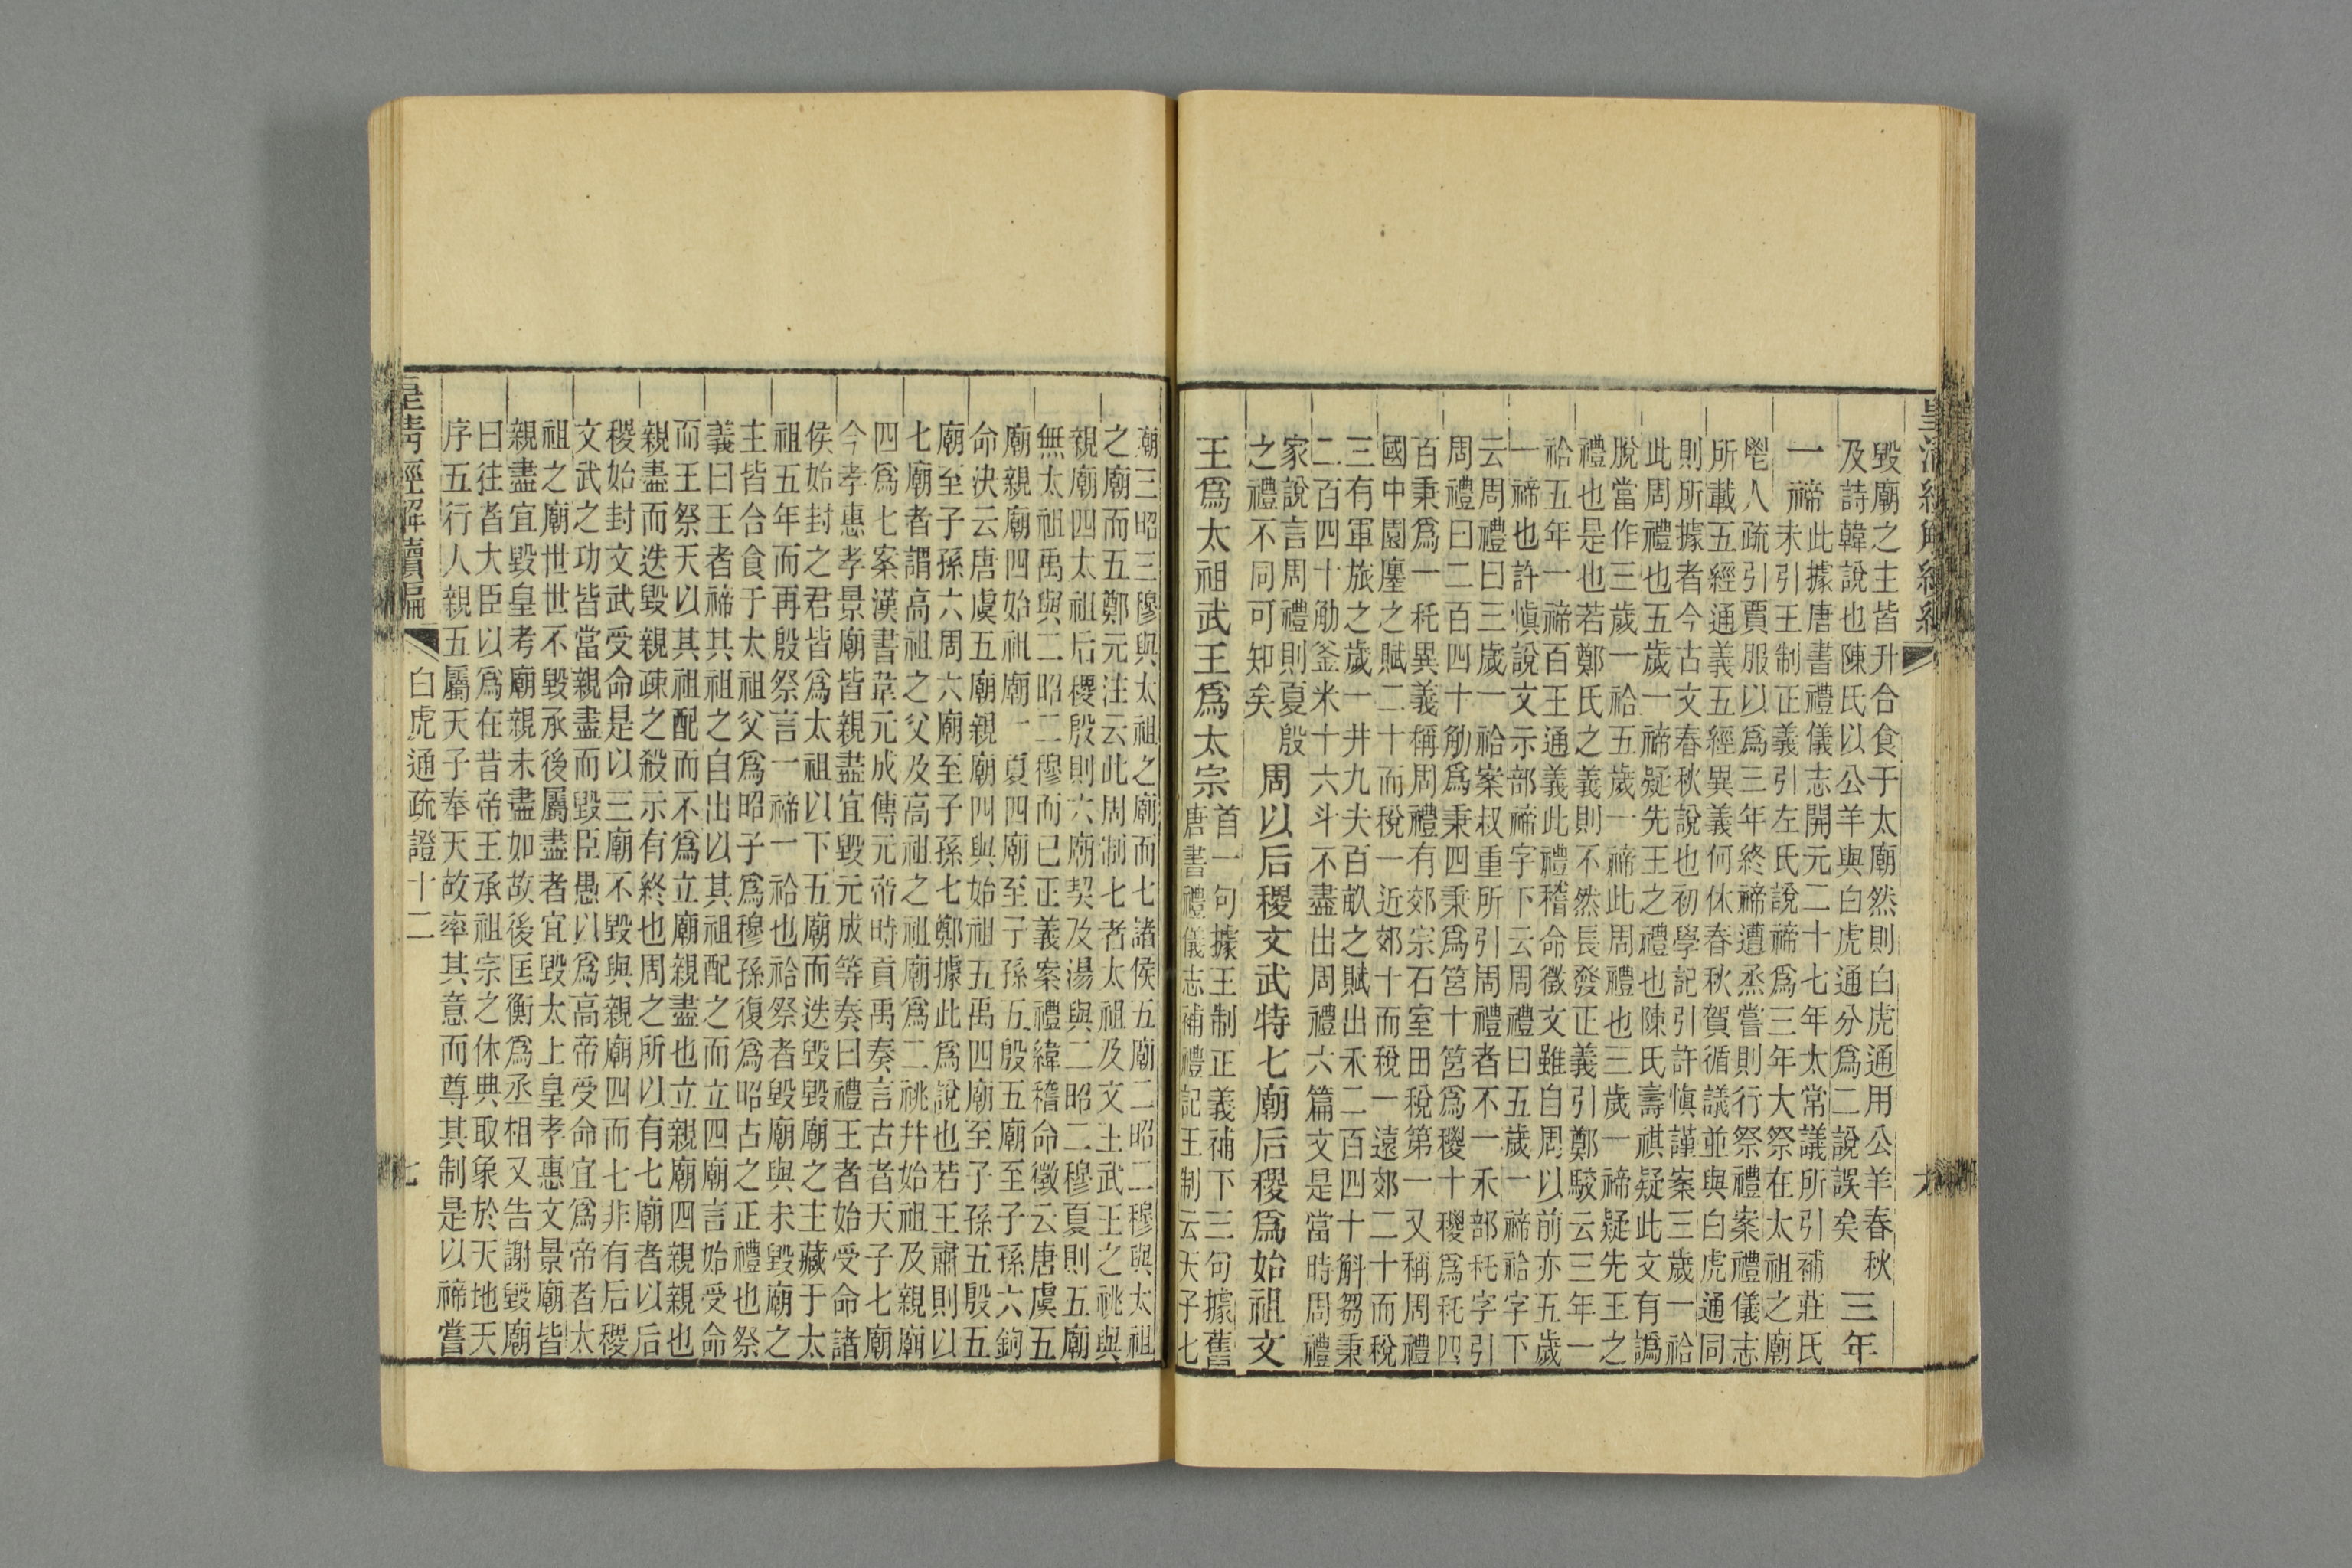 皇清經解續編
毀廟之主皆升合食于太廟然則白虎通用公羊春秋
及詩韓說也陳氏以公羊與白虎通分爲二說誤矣 三年
一禘此據唐書禮儀志開元二十七年太常議所引補莊氏
未引王制正義引左氏說禘爲三年大祭在太祖之廟
鬯人疏引賈服以爲三年終禘遭烝嘗則行祭禮案禮儀志
所載五經通義五經異義何休春秋賀循議並與白虎通同
則所據者今古文春秋說也初學記引許愼謹案三歲一祫
此周禮也五歲一禘疑先王之禮也陳氏壽祺疑此文有譌
脫當作三歲一祫五歲一禘此周禮也三歲一禘疑先王之
禮也是也若鄭氏之義則不然長發正義引鄭駁云三年一
祫五年一禘百王通義此禮稽命徵文雖自周以前亦五歲
一禘也許愼說文示部禘字下云周禮曰五歲一禘祫字下
云周禮曰三歲一祫案叔重所引周禮者不一禾部秅字引
周禮曰二百四十斞爲秉四秉爲筥十筥爲稯十稯爲秅四
百秉爲一秅異義稱周禮有郊宗石室田稅第一又稱周禮
國中園廛之賦二十而稅一近郊十而稅一遠郊二十而稅
三有軍旅之歲一井九夫百畝之賦出禾二百四十斛芻秉
二百四十斞釜米十六斗不盡出周禮六篇文是當時周禮
家說言周禮則夏殷
之禮不同可知矣 周以后稷文武特七廟后稷爲始祖文
王爲太祖武王爲太宗首一句據王制正義補下三句據舊
唐書禮儀志補禮記王制云天子七
廟三昭三穆與太祖之廟而七諸侯五廟二昭二穆與太祖
之廟而五鄭元注云此周制七者太祖及文王武王之祧與
親廟四太祖后稷殷則六廟契及湯與二昭二穆夏則五廟
無太祖禹與二昭二穆而已正義案禮緯稽命徵云唐虞五
廟親廟四始祖廟一夏四廟至子孫五殷五廟至子孫六鉤
命決云唐虞五廟親廟四與始祖五禹四廟至子孫五殷五
廟至子孫六周六廟至子孫七鄭據此爲說也若王肅則以
七廟者謂高祖之父及高祖之祖廟爲二祧幷始祖及親廟
四爲七案漢書韋元成傳元帝時貢禹奏言古者天子七廟
今孝惠孝景廟皆親盡宜毀元成等奏曰禮王者始受命諸
侯始封之君皆爲太祖以下五廟而迭毀毀廟之主藏于太
祖五年而再殷祭言一禘一祫也祫祭者毀廟與未毀廟之
主皆合食于太祖父爲昭子爲穆孫復爲昭古之正禮也祭
義曰王者禘其祖之自出以其祖配之而立四廟言始受命
而王祭天以其祖配而不爲立廟親盡也立親廟四親親也
親盡而迭毀親疎之殺示有終也周之所以有七廟者以后
稷始封文武受命是以三廟不毀與親廟四而七非有后稷
文武之功皆當親盡而毀臣愚以爲高帝受命宜爲帝者太
祖之廟世世不毀承後屬盡者宜毀太上皇孝惠文景廟皆
親盡宜毀皇考廟親未盡如故後匡衡爲丞相又告謝毀廟
曰往者大臣以爲在昔帝王承祖宗之休典取象於天地天
序五行人親五屬天子奉天故率其意而尊其制是以禘嘗
皇清經解續編 白虎通疏證十二 七